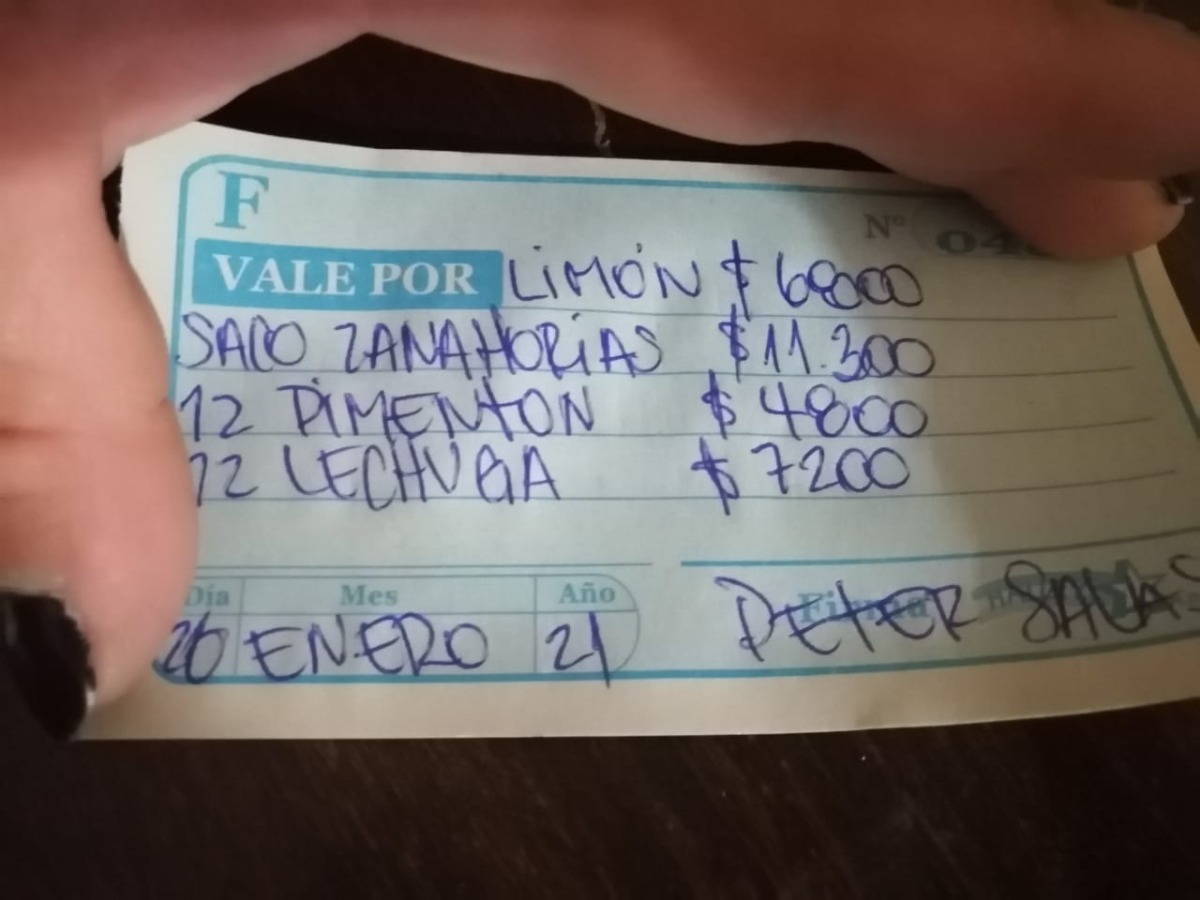 F
Nº 04
VALE POR LIMÓN $ 68000
SACO ZANAHORIAS $11.300
12 PIMENTON $ 4800
12 LECHUGA $ 7200
Día Mes Año
26 ENERO 21
Firma
PETER SALAS